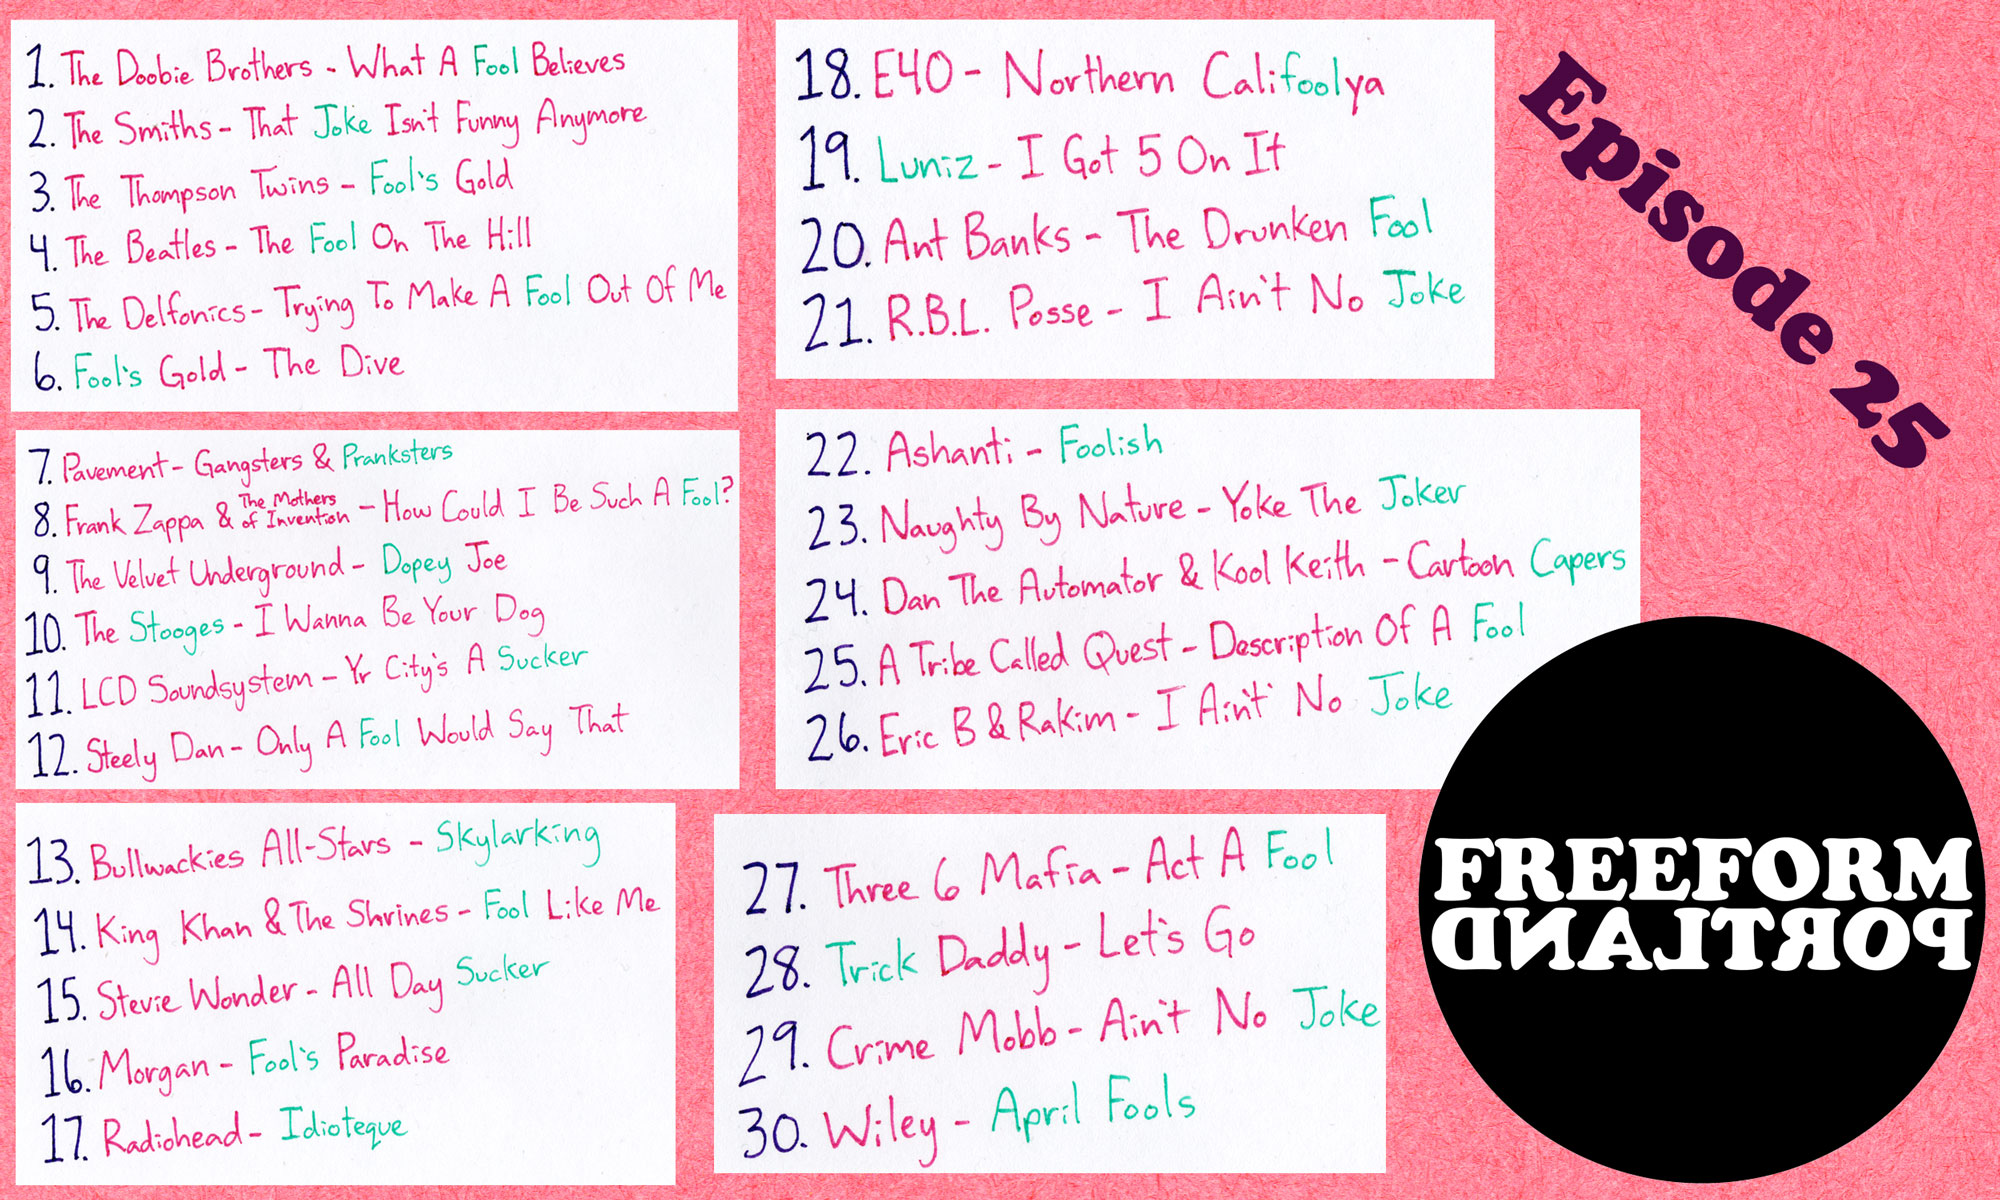 1. The Doobie Brothers - What A Fool Believes
2. The Smiths - That Joke Isn't Funny Anymore
3. The Thompson Twins - Fool's Gold
4. The Beatles - The Fool On The Hill
5. The Delfonics - Trying To Make A Fool Out Of Me
6. Fool's Gold - The Dive
7. Pavement - Gangsters & Pranksters
8. Frank Zappa & The Mothers of Invention - How Could I Be Such A Fool?
9. The Velvet Underground - Dopey Joe
10. The Stooges - I Wanna Be Your Dog
11. LCD Soundsystem - Yr City's A Sucker
12. Steely Dan - Only A Fool Would Say That
13. Bullwackies All-Stars - Skylarking
14. King Khan & The Shrines - Fool Like Me
15. Stevie Wonder - All Day Sucker
16. Morgan - Fool's Paradise
17. Radiohead - Idioteque
18. E40 - Northern Califoolya
19. Luniz - I Got 5 On It
20. Ant Banks - The Drunken Fool
21. R.B.L. Posse - I Ain't No Joke
22. Ashanti - Foolish
23. Naughty By Nature - Yoke The Joker
24. Dan The Automator & Kool Keith - Cartoon Capers
25. A Tribe Called Quest - Description Of A Fool
26. Eric B & Rakim - I Ain't No Joke
27. Three 6 Mafia - Act A Fool
28. Trick Daddy - Let's Go
29. Crime Mobb - Ain't No Joke
30. Wiley - April Fools
Episode 25
FREEFORM
PORTLAND